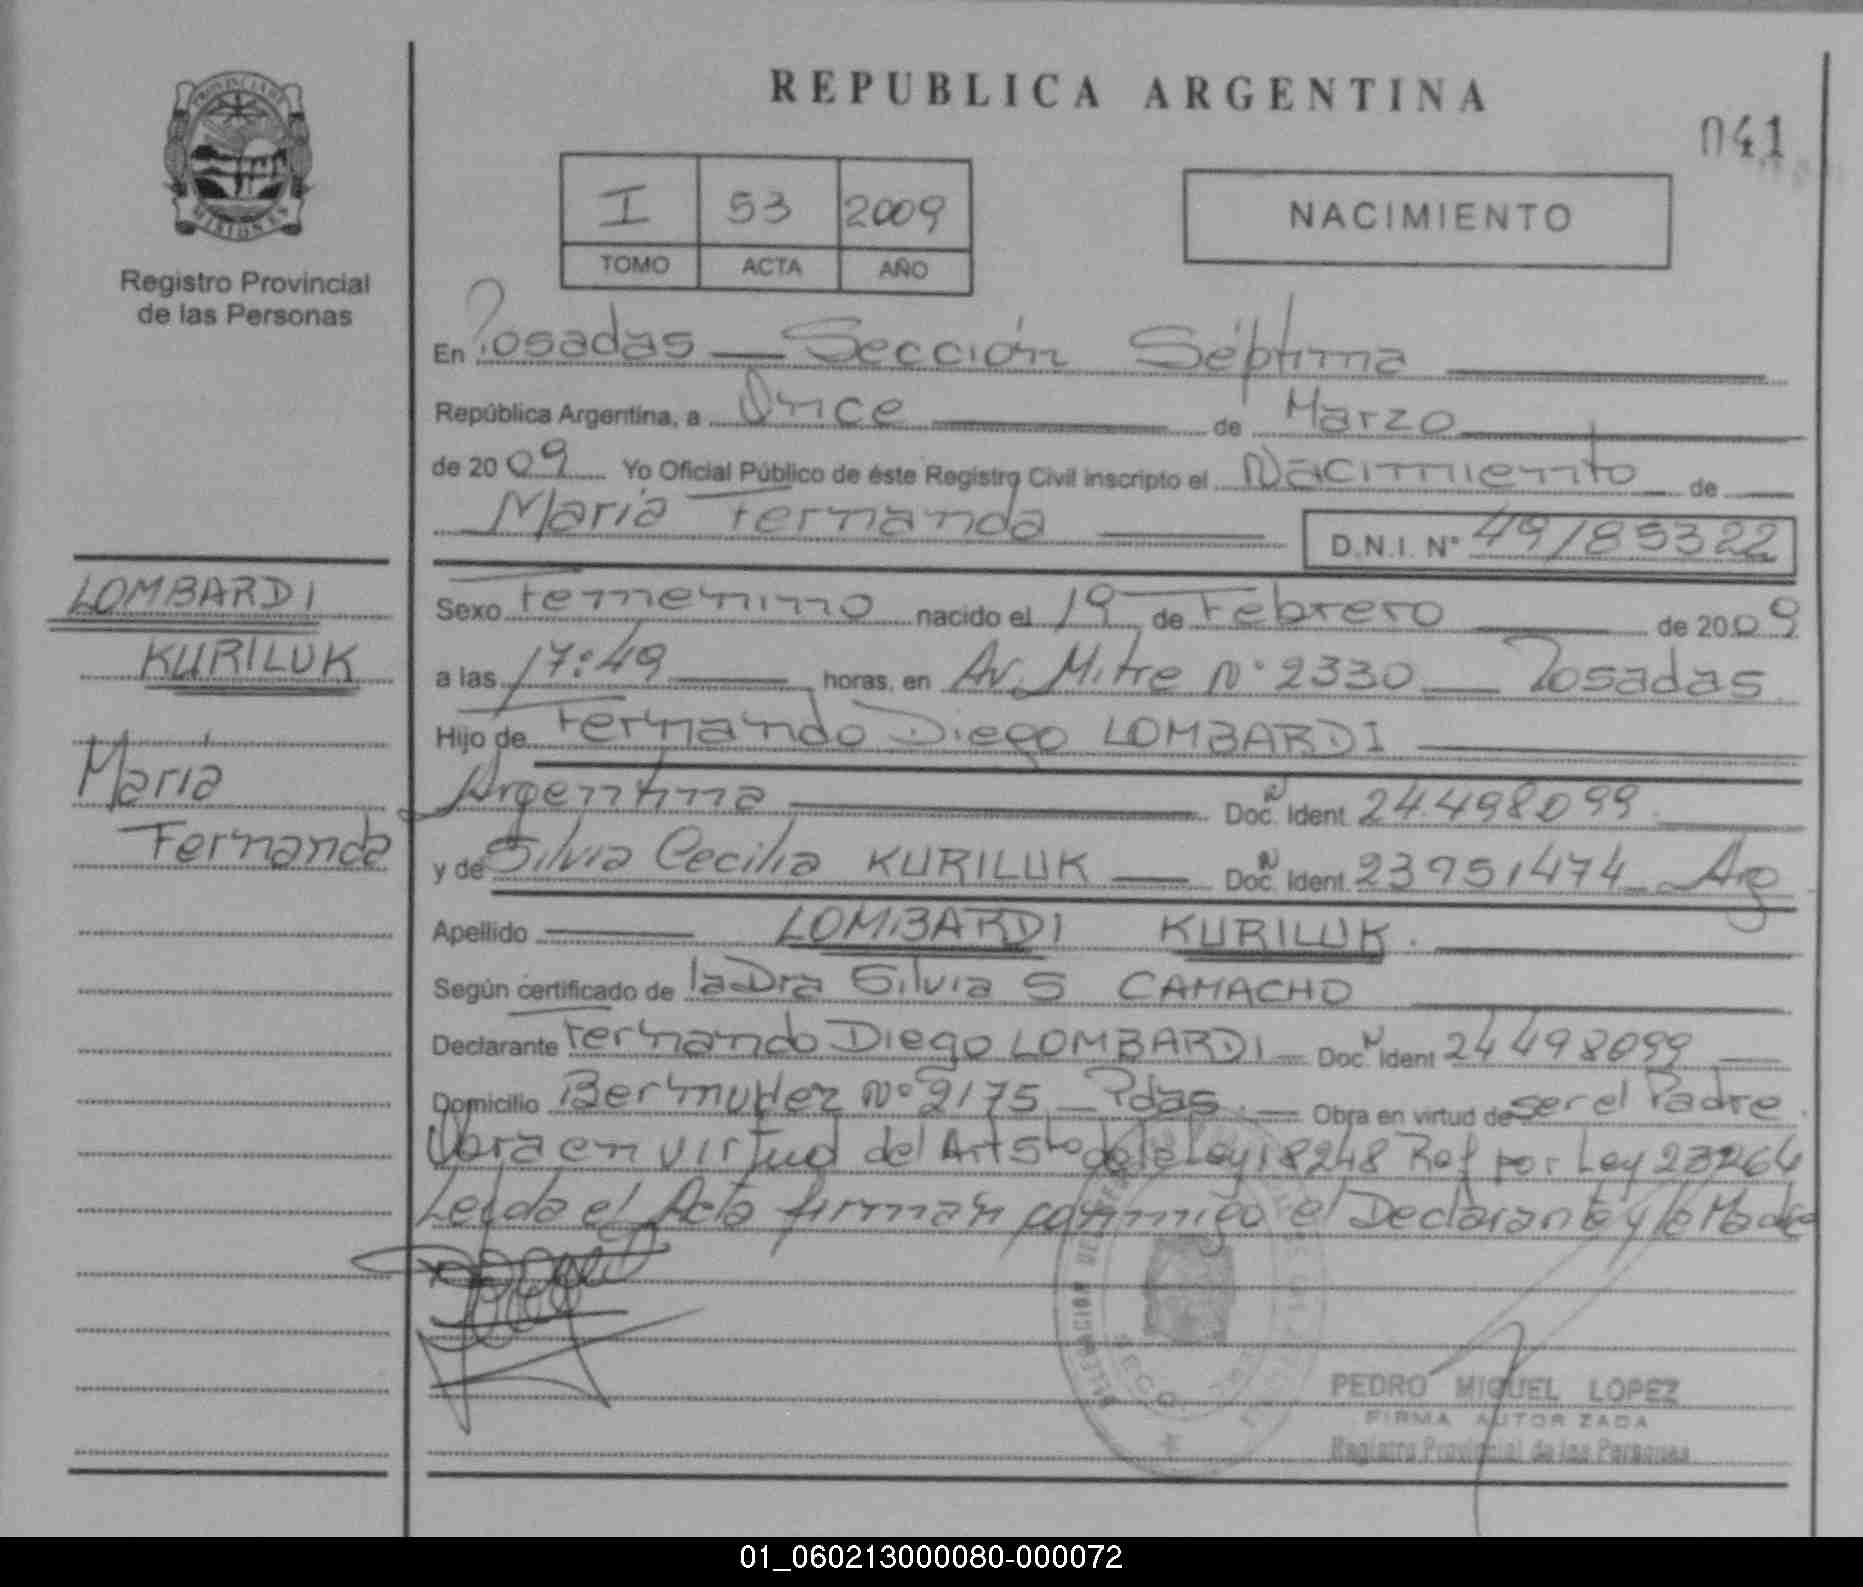 REPUBLICA ARGENTINA
041
PROVINCIA DE
MISIONES
Registro Provincial
de las Personas
I 53 2009
TOMO ACTA AÑO
NACIMIENTO
En Posadas — Sección Séptima
República Argentina, a Once de Marzo
de 2009 Yo Oficial Público de éste Registro Civil inscripto el Nacimiento de
María Fernanda D.N.I. N° 49185322
LOMBARDI
KURILUK
María
Fernanda
Sexo Femenino nacido el 19 de Febrero de 2009
a las 17:49 horas, en Av. Mitre N° 2330 — Posadas
Hijo de Fernando Diego LOMBARDI
Argentina Doc. Ident. 24.498099
y de Silvia Cecilia KURILUK — Doc. Ident. 23951474 Arg
Apellido LOMBARDI KURILUK.
Según certificado de la Dra Silvia S CAMACHO
Declarante Fernando Diego LOMBARDI Doc. Ident 24498099
Domicilio Bermudez N° 2175 — Pdas. — Obra en virtud de ser el Padre.
Obra en virtud del Art 5to de la Ley 18248 Ref por Ley 23264
Leída el Acta firman conmigo el Declarante y la Madre
PEDRO MIGUEL LOPEZ
FIRMA AUTORIZADA
Registro Provincial de las Personas
01_060213000080-000072